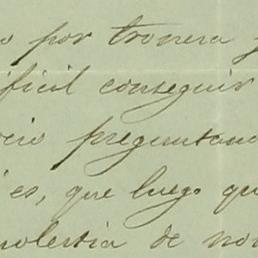 o por tronera
ificil conseguir
cio preguntan
es, que luego qu
molestia de no